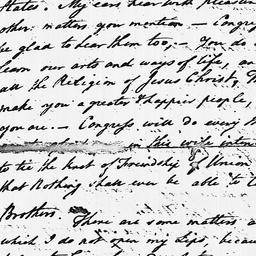 States. My ears hear with pleasure
other matters you mention — Congress
be glad to hear them too, — You do
learn our arts and ways of life, and
all the Religion of Jesus Christ. Th
make you a greater & happier people,
you are. — Congress will do every th
in this wise inten
to tie the knot of Friendship & Union
that Nothing shall ever be able to l
Brothers There are some matters a
which I do not open my Lips, becau